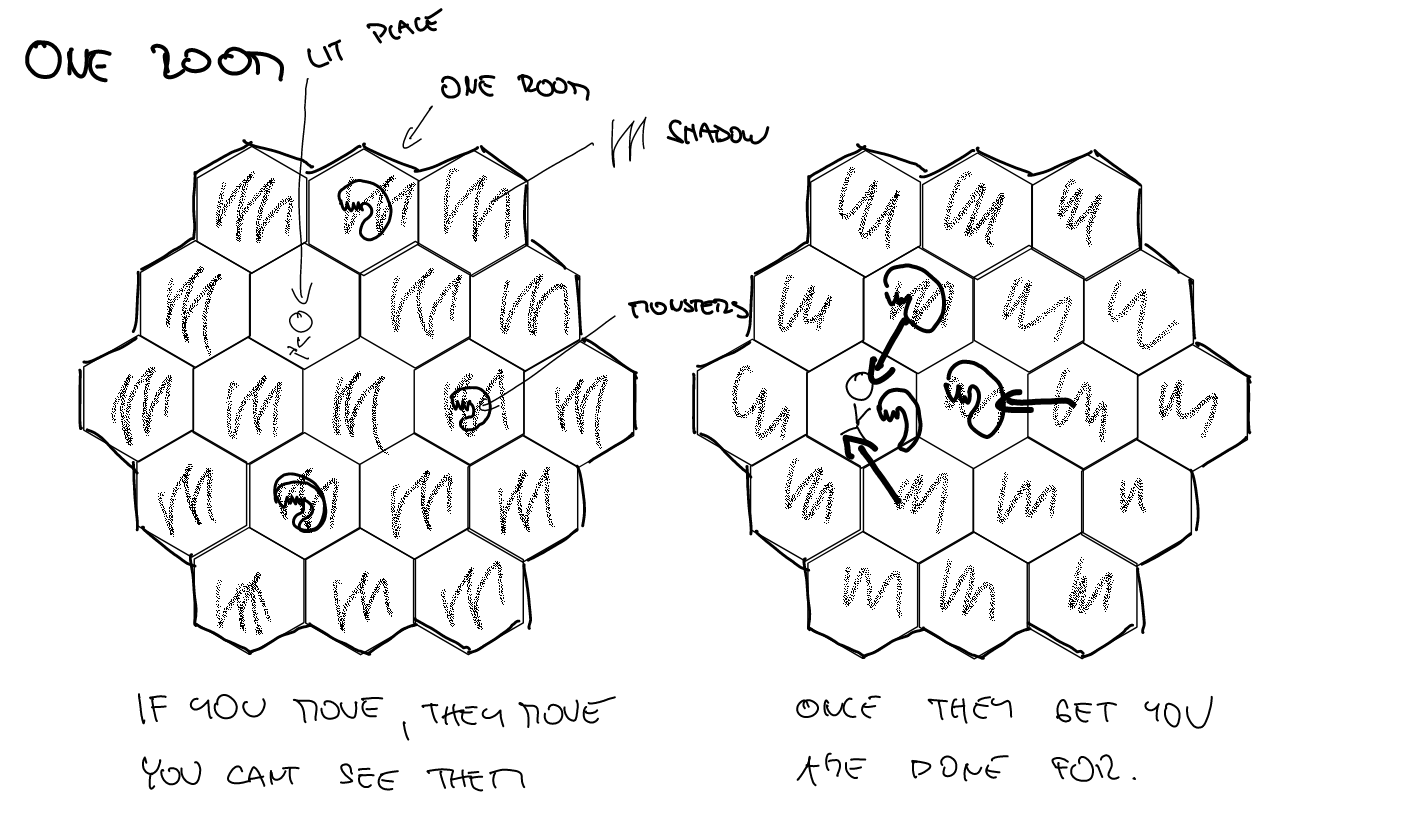 ONE ROOM
LIT PLACE
ONE ROOM
SHADOW
MONSTERS
IF YOU MOVE, THEY MOVE
YOU CANT SEE THEM
ONCE THEY GET YOU
ARE DONE FOR.